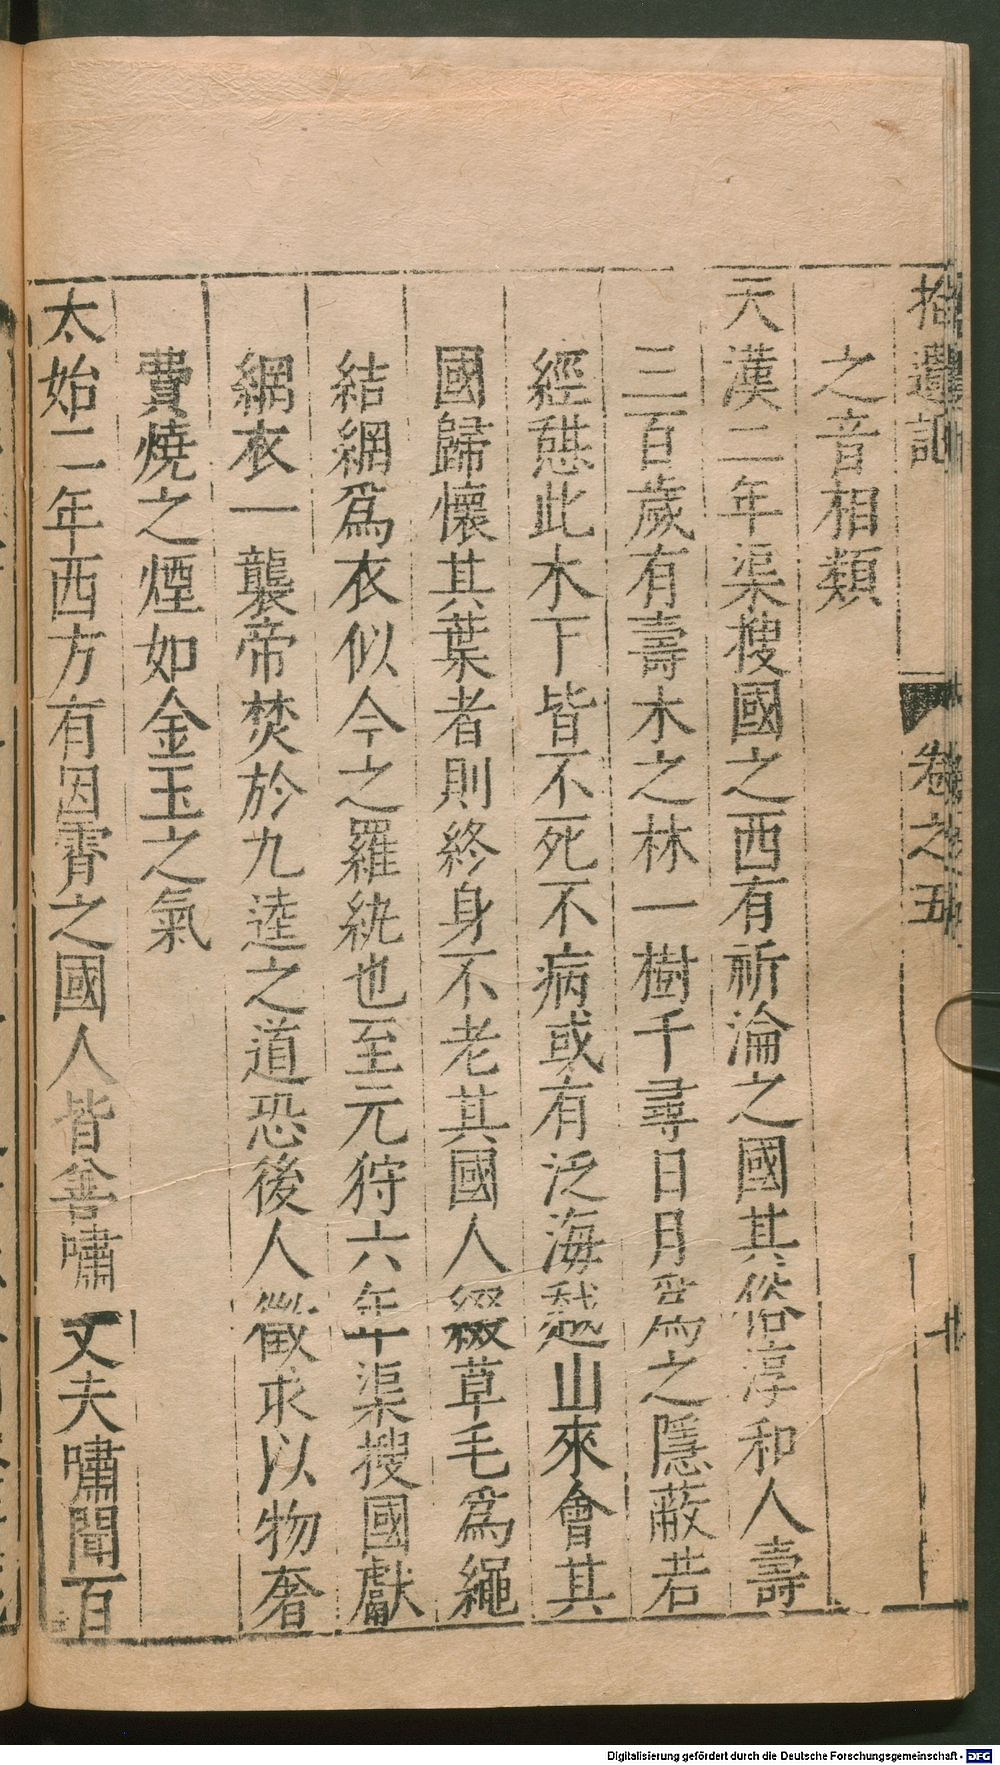 拾遺記 卷之五 十
之音相類
天漢二年渠搜國之西有祈淪之國其俗淳和人壽
三百歲有壽木之林一樹千尋日月為之隱蔽若
經憇此木下皆不死不病或有泛海越山來會其
國歸懷其葉者則終身不老其國人綴草毛為繩
結網為衣似今之羅紈也至元狩六年渠搜國獻
網衣一襲帝焚於九逵之道恐後人徵求以物奢
費燒之煙如金玉之氣
太始二年西方有因霄之國人皆善嘯丈夫嘯聞百
Digitalisierung gefördert durch die Deutsche Forschungsgemeinschaft - DFG